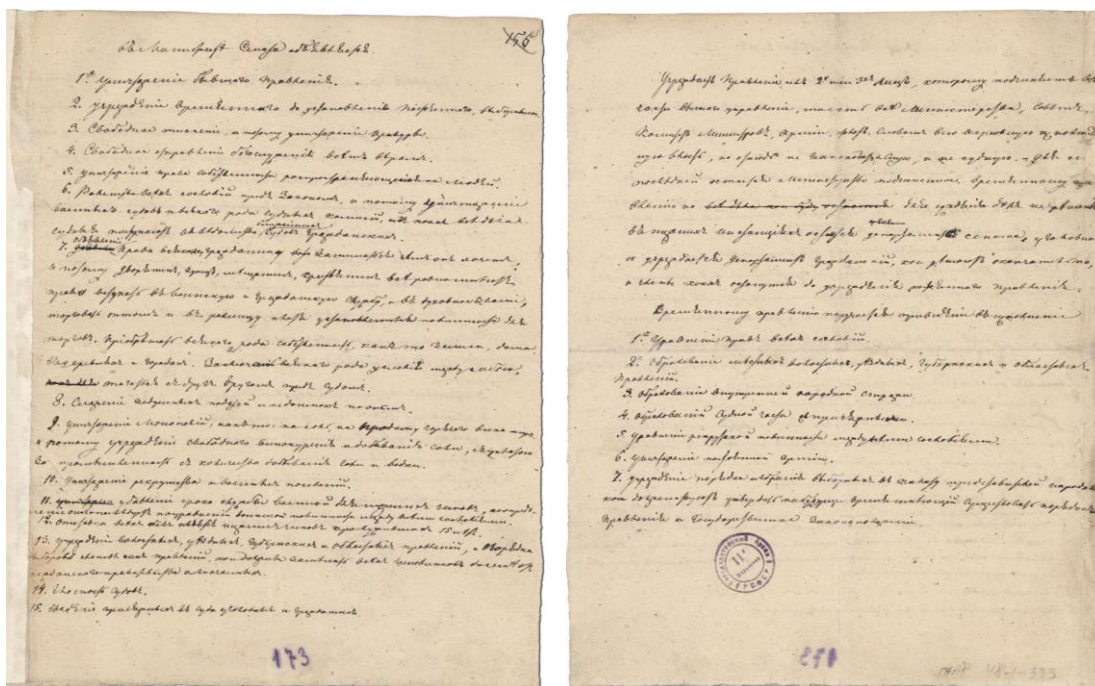 Въ Манифестѣ Сената объявляется 156
1е Уничтоженіе бывшаго Правленія.
2. Учрежденіе временнаго до установленія постояннаго, выборными.
3. Свободное тисненіе, и потому уничтоженіе цензуры.
4. Свободное отправленіе богослуженія всѣмъ вѣрамъ.
5. Уничтоженіе права собственности распространяющейся на людей.
6. Равенство всѣхъ сословій предъ Закономъ, и потому уничтоженіе
военныхъ судовъ и всякаго рода судныхъ комиссій, изъ коихъ всѣ дѣла
судныя поступаютъ въ вѣдомство ближайшихъ судовъ гражданскихъ.
7. объявленіе права всякому гражданину заниматься чѣмъ онъ хочетъ,
и потому дворянинъ, купецъ, мѣщанинъ, крестьянинъ все равно имѣютъ
право вступать въ воинскую и гражданскую службу и въ духовное званіе,
торговать оптомъ и въ розницу платя установленныя повинности для
торговъ. Пріобрѣтать всякаго рода собственность, какъ то земли, дома
въ деревняхъ и городахъ. Заключать всякаго рода условія между собою,
тягаться другъ съ другомъ предъ судомъ.
8. Сложеніе подушныхъ податей и недоимокъ по онымъ.
9. Уничтоженіе монополій, какъ то: на соль, на продажу горячаго вина
и потому учрежденіе свободнаго винокуренія и добыванія соли, съ уплатою
за промышленность съ количества добыванія соли и водки.
10. Уничтоженіе рекрутства и военныхъ поселеній.
11. убавленіе срока службы военной для нижнихъ чиновъ,
уравненіи воинской повинности между всѣми сословіями.
12. Отставка всѣхъ безъ изъятія нижнихъ чиновъ прослужившихъ 15 лѣтъ.
13. Учрежденіе волостныхъ, уѣздныхъ, губернскихъ и областныхъ правленій, и порядка
выборовъ членовъ сихъ правленій, кои должны замѣнить всѣхъ чиновниковъ доселѣ отъ
гражданскаго правительства назначенныхъ.
14. Гласность судовъ.
15. Введеніе присяжныхъ въ суды уголовные и гражданскіе.
173
Учреждаетъ Правленіе изъ 2хъ или 3хъ лицъ, которому подчиняетъ всѣ
части высшаго управленія, то есть всѣ Министерства, Совѣтъ,
Комитетъ Министровъ, Арміи, флотъ. Словомъ всю верховную исполнительную
власть, но отнюдь не законодательную, и не судную. Для сей
послѣдней остается Министерство подчиненное временному правленію
но для сужденія дѣлъ не рѣшенныхъ
въ нижнихъ инстанціяхъ остается департаментъ сената, уголовный
и учреждается департаментъ гражданскій, кои рѣшаютъ окончательно,
и члены коихъ останутся до учрежденія постояннаго правленія.
Временному правленію поручается приведеніе въ исполненіе
1е Уравненія правъ всѣхъ сословій.
2е Образованіе мѣстныхъ волостныхъ, уѣздныхъ, губернскихъ и областныхъ
Правленій.
3. Образованіе внутренней народной стражи.
4. Образованія судной части съ присяжными.
5. Уравненія рекрутской повинности между всѣми сословіями.
6. Уничтоженіе постоянной арміи.
7. Учрежденіе порядка избранія выборныхъ въ палату представителей народныхъ
кои долженствуютъ утвердить на будущее время имѣющій существовать порядокъ
Правленія и Государственное законоположеніе.